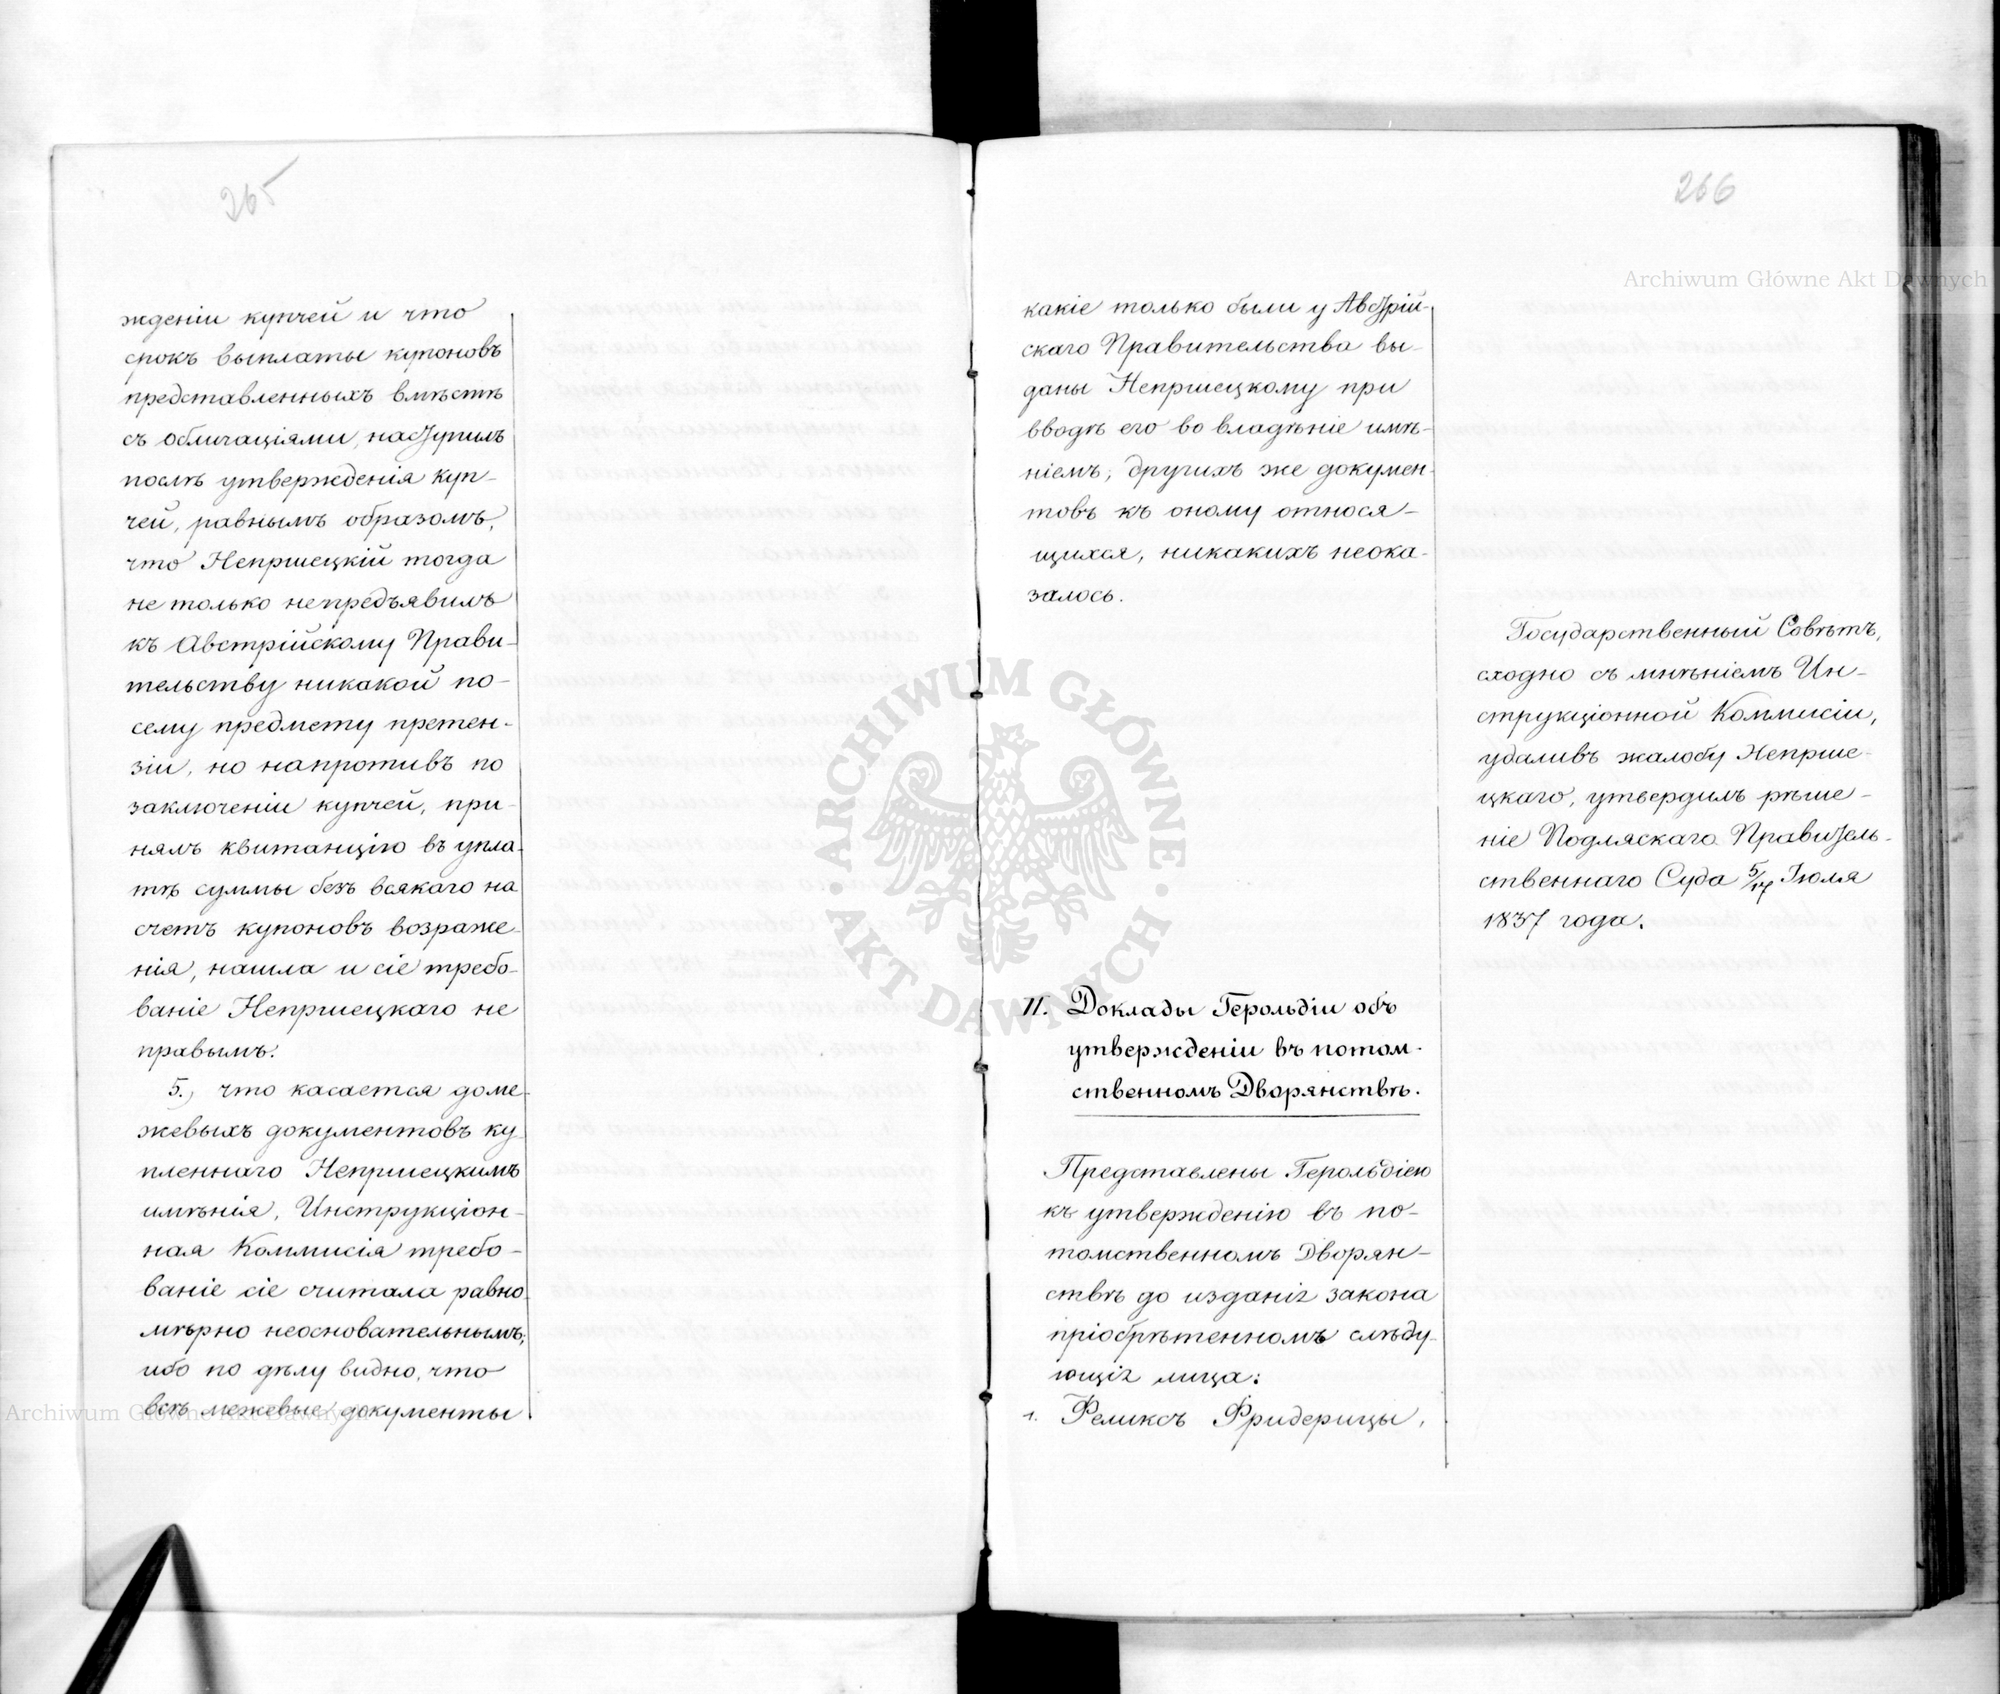 265
жденіи купчей и что
срокъ выплаты купоновъ
представленныхъ вмѣстѣ
съ облигаціями, наступилъ
послѣ утвержденія куп-
чей, равнымъ образомъ,
что Непршецкій тогда
не только непредъявилъ
къ Австрійскому Прави-
тельству никакой по-
сему предмету претен-
зіи, но напротивъ по
заключеніи купчей, при-
нялъ квитанцію въ упла-
тѣ суммы безъ всякаго на
счетъ купоновъ возраже-
нія, нашла и сіе требо-
ваніе Непршецкаго не
правымъ.
5., что касается до ме-
жевыхъ документовъ ку
пленнаго Непршецкимъ
имѣнія, Инструкціон-
ная Коммисія требо-
ваніе сіе считала равно-
мѣрно неосновательнымъ,
ибо по дѣлу видно, что
всѣ межевые документы
266
какіе только были у Австрій-
скаго Правительства вы-
даны Непршецкому при
вводѣ его во владѣніе имѣ-
ніемъ, другихъ же докумен-
товъ къ оному относя-
щихся, никакихъ неока-
залось.
Государственный Совѣтъ,
сходно съ мнѣніемъ Ин-
струкціонной Коммисіи,
удаливъ жалобу Непрше-
цкаго, утвердилъ рѣше-
ніе Подляскаго Правитель-
ственнаго Суда 5/17 Іюля
1837 года.
II. Доклады Герольдіи объ
утвержденіи въ потом-
ственномъ Дворянствѣ.
Представлены Герольдіею
къ утвержденію въ по-
томственномъ Дворян-
ствѣ до изданія закона
пріобрѣтенномъ слѣду-
ющія лица:
1. Феликсъ Фридерицы,
Archiwum Główne Akt Dawnych
Archiwum Główne Akt Dawnych
ARCHIWUM GŁÓWNE
AKT DAWNYCH